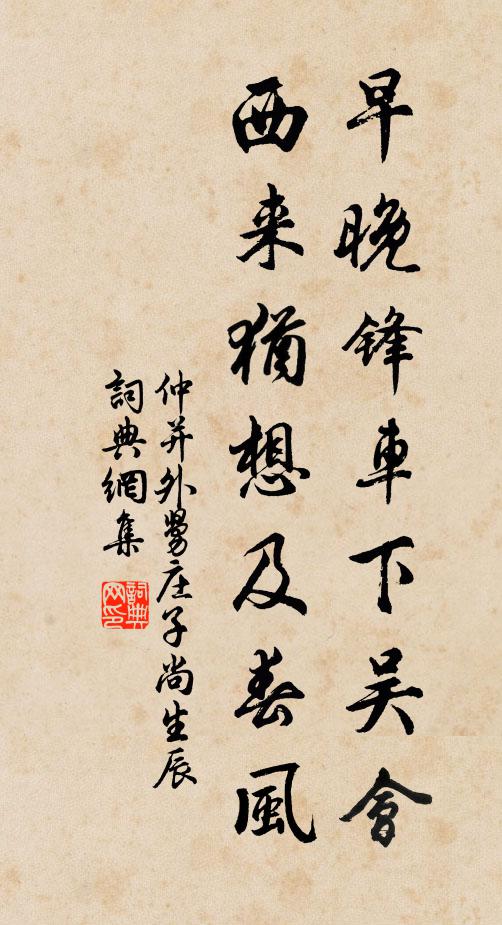 早晚鋒車下吴會
西来猶想及春風
仲并外舅庄子尚生辰
詞典網集
詞典网印